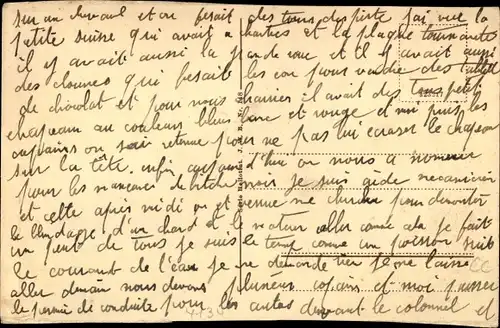 sur un cheval et on fesait des tours de piste j'ai vue la
petite suisse qui avait chartres et la plaque tournante
il y avait aussi la grande roue et il y avait aussi
des clowns qui fesait les con pour vendre des tablettes
de chocolat et pour nous charrier il avait des tous petits
chapeau au couleurs bleu blanc et rouge et moi puis les
copains on sait retenue pour ne pas lui écraser le chapeau
sur la tête. enfin aujourd'hui on nous a nommer
pour les manœuvres de bitche moi je suis aide mecanicien
et cette après midi on et venue me chercher pour demonter
le blindage d'un chard et le moteur aller comme cela je fait
un peut de tous je suis le temp comme un poisson suit
le courant de l'eau je ne demande rien je me laisse
aller demain nous devons plusieur copains et moi passer
le permie de conduite pour les autos devant le colonnel et